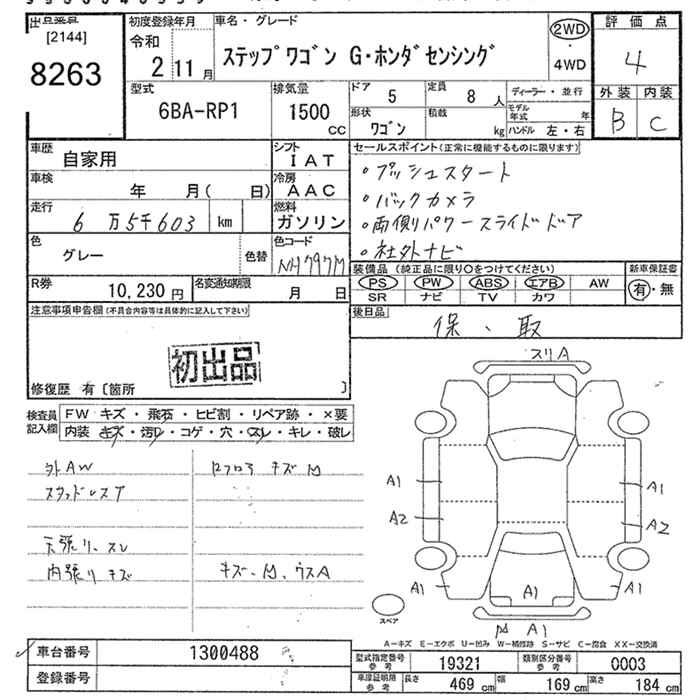 出品票
[2144]
8263
初度登録年月
令和
2 11月
車名・グレード
ステップワゴン G・ホンダセンシング
2WD
・
4WD
評価点
4
外装 内装
B C
型式
6BA-RP1
排気量
1500
CC
ドア 5
定員 8 人
形状 ワゴン
積載 kg
ディーラー・並行
モデル年式 年
ハンドル 左・右
車歴 自家用
シフト IAT
車検 年 月( 日)
冷房 AAC
走行 6 万5千603 km
燃料 ガソリン
色 グレー
色替
色コード NH797M
R券 10,230 円
名変通知期限 月 日
セールスポイント(正常に機能するものに限ります)
・プッシュスタート
・バックカメラ
・両側パワースライドドア
・社外ナビ
装備品 (純正品に限り○をつけてください)
新車保証書
PS PW ABS エアB AW
SR ナビ TV カワ
有・無
後日品
保、取
注意事項申告欄(不具合内容等は具体的に記入して下さい)
初出品
修復歴 有〔箇所 〕
検査員記入欄
FW キズ・飛石・ヒビ割・リペア跡・×要
内装 キズ・汚れ・コゲ・穴・スレ・キレ・破レ
外AW
スタッドレスア
天張り、スレ
内張りキズ
キズ、ウスA
スリA
A1
A2
A1
A1
A2
A1
A1
A1
スペア
A-キズ E-エクボ U-凹み W-補修跡 S-サビ C-腐食 XX-交換済
車台番号 1300488
登録番号
型式指定番号参考 19321
類別区分番号参考 0003
車庫証明用参考 長さ 469 cm 幅 169 cm 高さ 184 cm